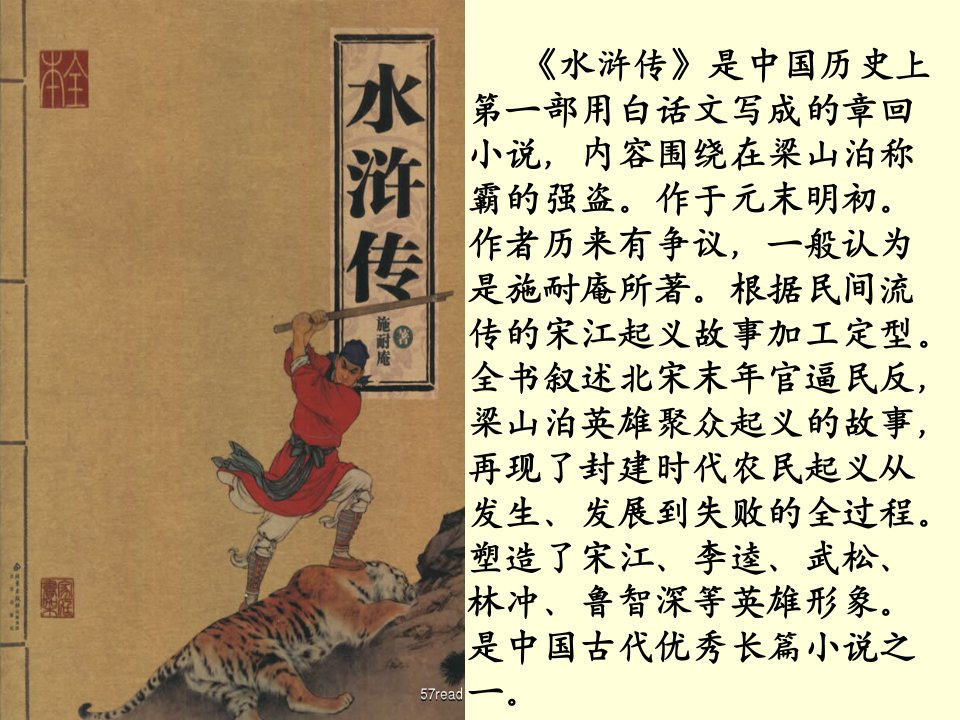 全本
水浒传
施耐庵 著
57read
《水浒传》是中国历史上
第一部用白话文写成的章回
小说，内容围绕在梁山泊称
霸的强盗。作于元末明初。
作者历来有争议，一般认为
是施耐庵所著。根据民间流
传的宋江起义故事加工定型。
全书叙述北宋末年官逼民反，
梁山泊英雄聚众起义的故事，
再现了封建时代农民起义从
发生、发展到失败的全过程。
塑造了宋江、李逵、武松、
林冲、鲁智深等英雄形象。
是中国古代优秀长篇小说之
一。